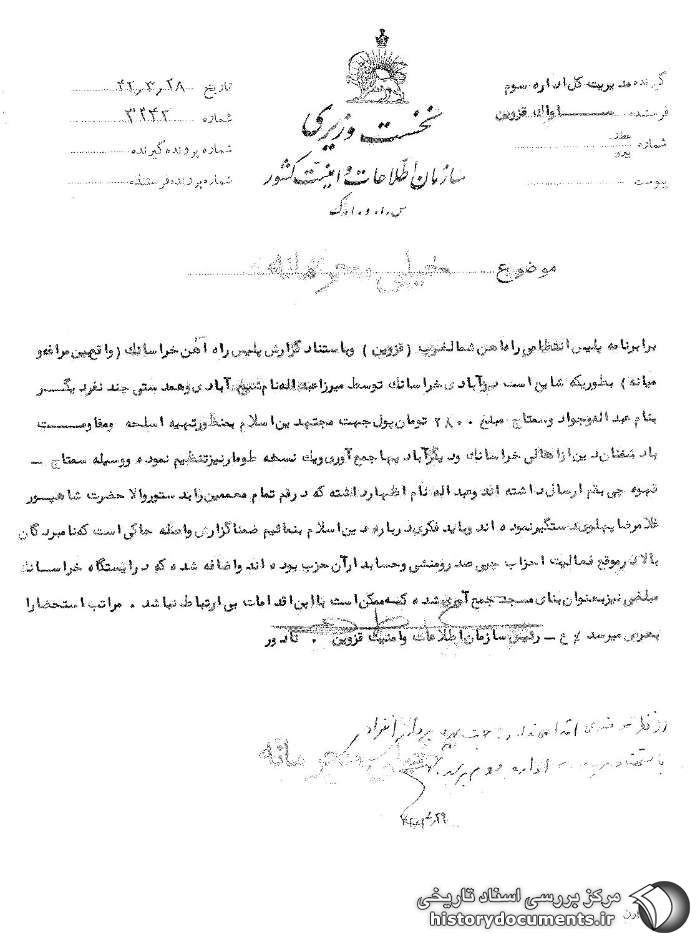 گیرنده مدیریت کل اداره سوم
فرستنده ساواک قزوین
شماره عطف پیرو
پیوست
نخست وزیری
سازمان اطلاعات و امنیت کشور
س.ا.و.ا.ک
تاریخ ۴۲٫۳٫۲۸
شماره ۳۲۴۲
شماره پرونده گیرنده
شماره پرونده فرستنده
موضوع خیلی محرمانه
برابر نامه پلیس انتظامی راه آهن شمالغرب (قزوین) و باستناد گزارش پلیس راه آهن خراسانک (واقع بین مراغه و
میانه) بطوریکه شایع است در آبادی خراسانک توسط میرزا عبداله نام شیخ آبادی و همدستی چند نفر دیگر
بنام عبداله و جواد و معتاج مبلغ ۲۸۰۰ تومان پول جهت مجتهدین اسلام بمنظور تهیه اسلحه و مقاومت
با دشمنان دین از اهالی خراسانک و دیگر آبادیها جمع آوری و یک نسخه طومار نیز تنظیم نموده و وسیله معتاج –
قهوه چی بقم ارسال داشته اند و عبداله نام اظهار داشته که در قم تمام معممین را بدستور والاحضرت شاهپور
غلامرضا پهلوی دستگیر نموده اند و باید فکری درباره دین اسلام بنمائیم ضمنا گزارش واصله حاکی است که نامبردگان
بالا در موقع فعالیت احزاب چپی صدر و منشی و حسابدار آن حزب بوده اند و اضافه شده که در ایستگاه خراسانک
مبلغی نیز بعنوان بنای مسجد جمع آوری شده که ممکن است با این اقدامات بی ارتباط نباشد. مراتب استحضارا
بعرض میرسد /ع – رئیس سازمان اطلاعات و امنیت قزوین . نادور
خیلی محرمانه
مرکز بررسی اسناد تاریخی
historydocuments.ir